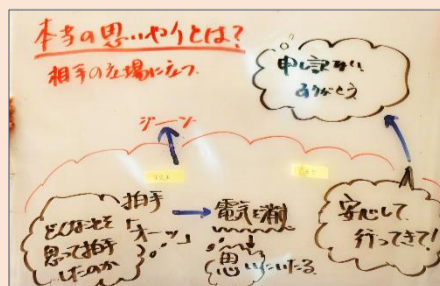 本当の思いやりとは?
相手の立場に立つ
申し訳ない
ありがとう
ジーン
拍手
「オーッ」
どんなことを
思って拍手
したのか
電気を消す
思いにいたる
安心して
行ってきて!